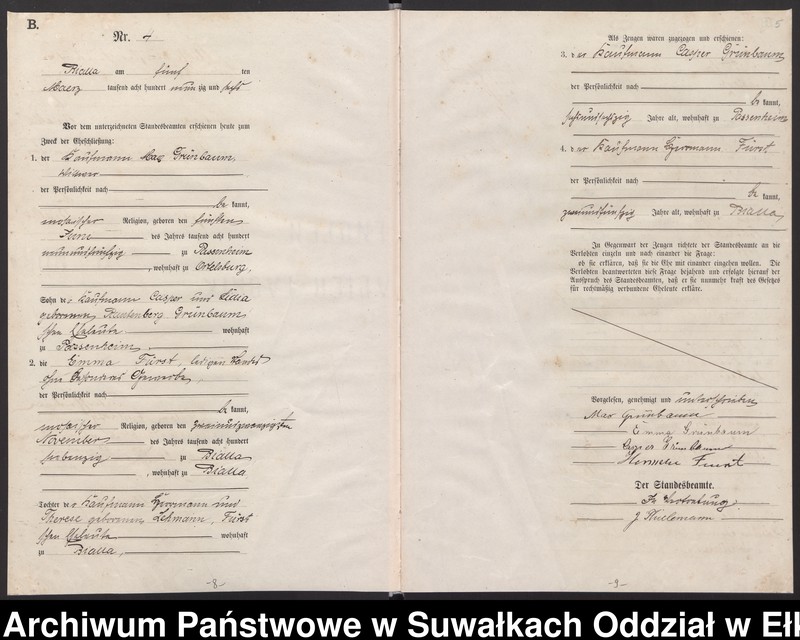 B.
Nr. 7
Bialla am fünf ten
Maerz tausend acht hundert neun zig und sechs
Vor dem unterzeichneten Standesbeamten erschienen heute zum
Zweck der Eheschließung:
1. der Kaufmann Max Grünbaum,
Witwer
der Persönlichkeit nach
be kannt,
mosaischer Religion, geboren den fünften
des Jahres tausend acht hundert
neunundfünfzig zu Passenheim
, wohnhaft zu Ortelsburg,
Sohn des Kaufmann Casper und
geborenen Grünbaum
schen Eheleute wohnhaft
zu Passenheim,
2. die Emma Fürst, ledigen Standes
ohne besonderes Gewerbe,
der Persönlichkeit nach
be kannt,
mosaischer Religion, geboren den zweiundzwanzigsten
November des Jahres tausend acht hundert
siebenzig zu Bialla
, wohnhaft zu Bialla
Tochter des Kaufmann Herrmann und
Therese geborenen Lehmann, Fürst
schen Eheleute wohnhaft
zu Bialla,
-8-
5
Als Zeugen waren zugezogen und erschienen:
3. der Kaufmann Casper Grünbaum,
der Persönlichkeit nach
be kannt,
Jahre alt, wohnhaft zu Passenheim
4. der Kaufmann Herrmann Fürst
der Persönlichkeit nach
be kannt,
zweiundfünfzig Jahre alt, wohnhaft zu Bialla,
In Gegenwart der Zeugen richtete der Standesbeamte an die
Verlobten einzeln und nach einander die Frage:
ob sie erklären, daß sie die Ehe mit einander eingehen wollen. Die
Verlobten beantworteten diese Frage bejahend und erfolgte hierauf der
Ausspruch des Standesbeamten, daß er sie nunmehr kraft des Gesetzes
für rechtmäßig verbundene Eheleute erkläre.
Vorgelesen, genehmigt und unterschrieben
Max Grünbaum
Emma Grünbaum
Casper Grünbaum
Herrmann Fürst
Der Standesbeamte.
In Vertretung,
-9-
Archiwum Państwowe w Suwałkach Oddział w Eł